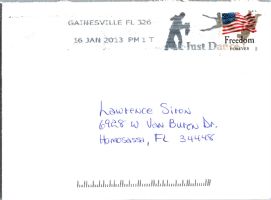 GAINESVILLE FL 326
16 JAN 2013 PM 1 T
Just Dance
Freedom
FOREVER
Lawrence Siron
6928 W Van Buren Dr.
Homosassa, FL 34448